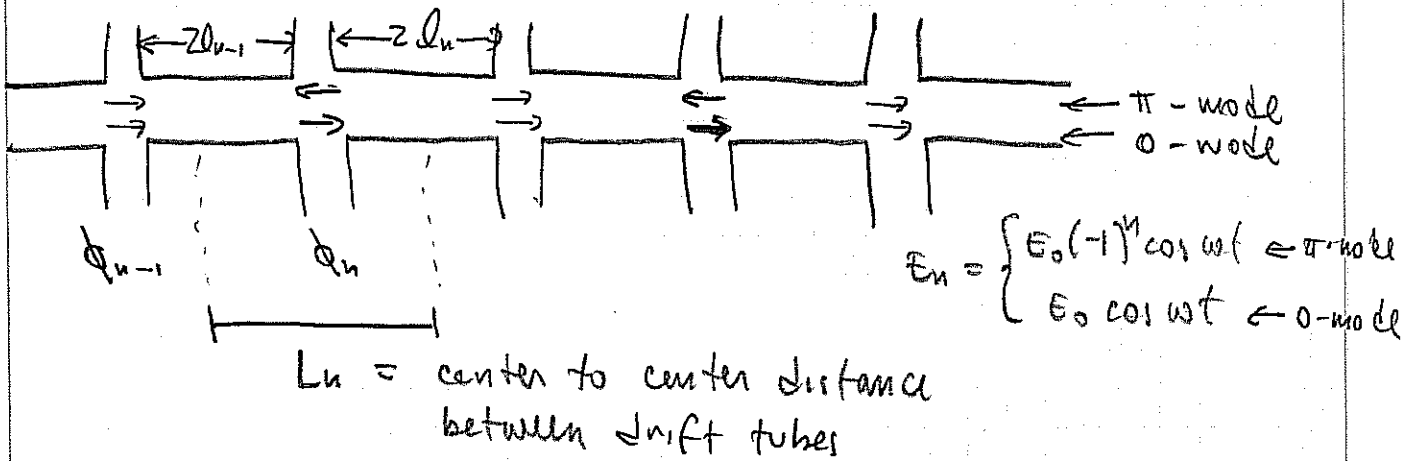 ←2ℓₙ₋₁→ ←2ℓₙ→
← π-mode
← 0-mode
ϕₙ₋₁ ϕₙ
Eₙ = { E₀(-1)ⁿ cos ωt ← π-mode
E₀ cos ωt ← 0-mode
Lₙ = center to center distance
between drift tubes